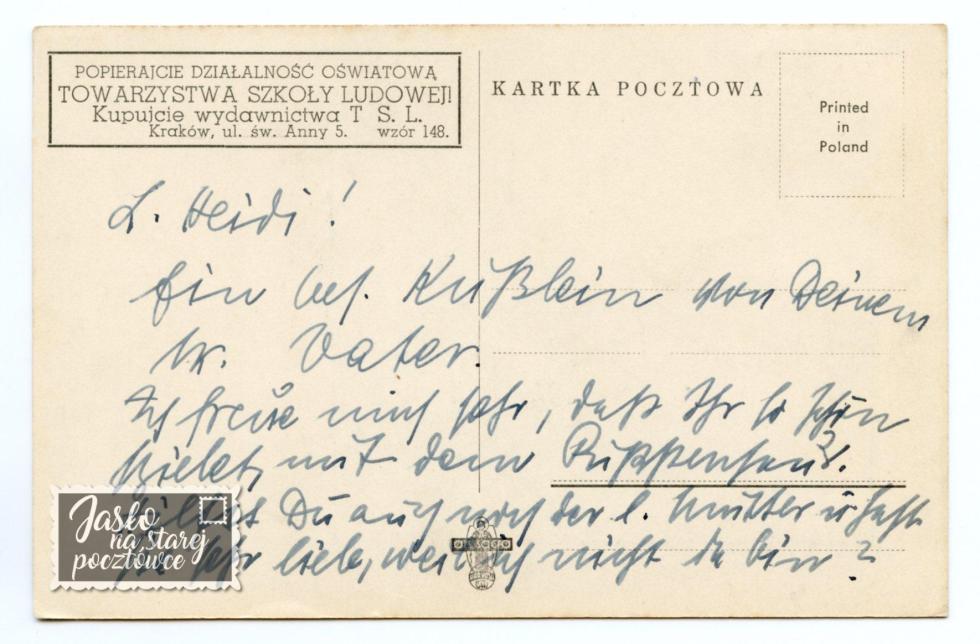 POPIERAJCIE DZIAŁALNOŚĆ OŚWIATOWĄ
TOWARZYSTWA SZKOŁY LUDOWEJ!
Kupujcie wydawnictwa T. S. L.
Kraków, ul. św. Anny 5. wzór 148.
KARTKA POCZTOWA
Printed
in
Poland
L. Heidi!
Ein bes. Küßlein von Deinem
Vater.
Ich freue mich sehr, daß Ihr so schön
spielet, mit dem Puppenhaus.
Du auch noch der l. Mutter u. hast
liebe, weil ich nicht da bin?
Jasło
na starej
pocztówce